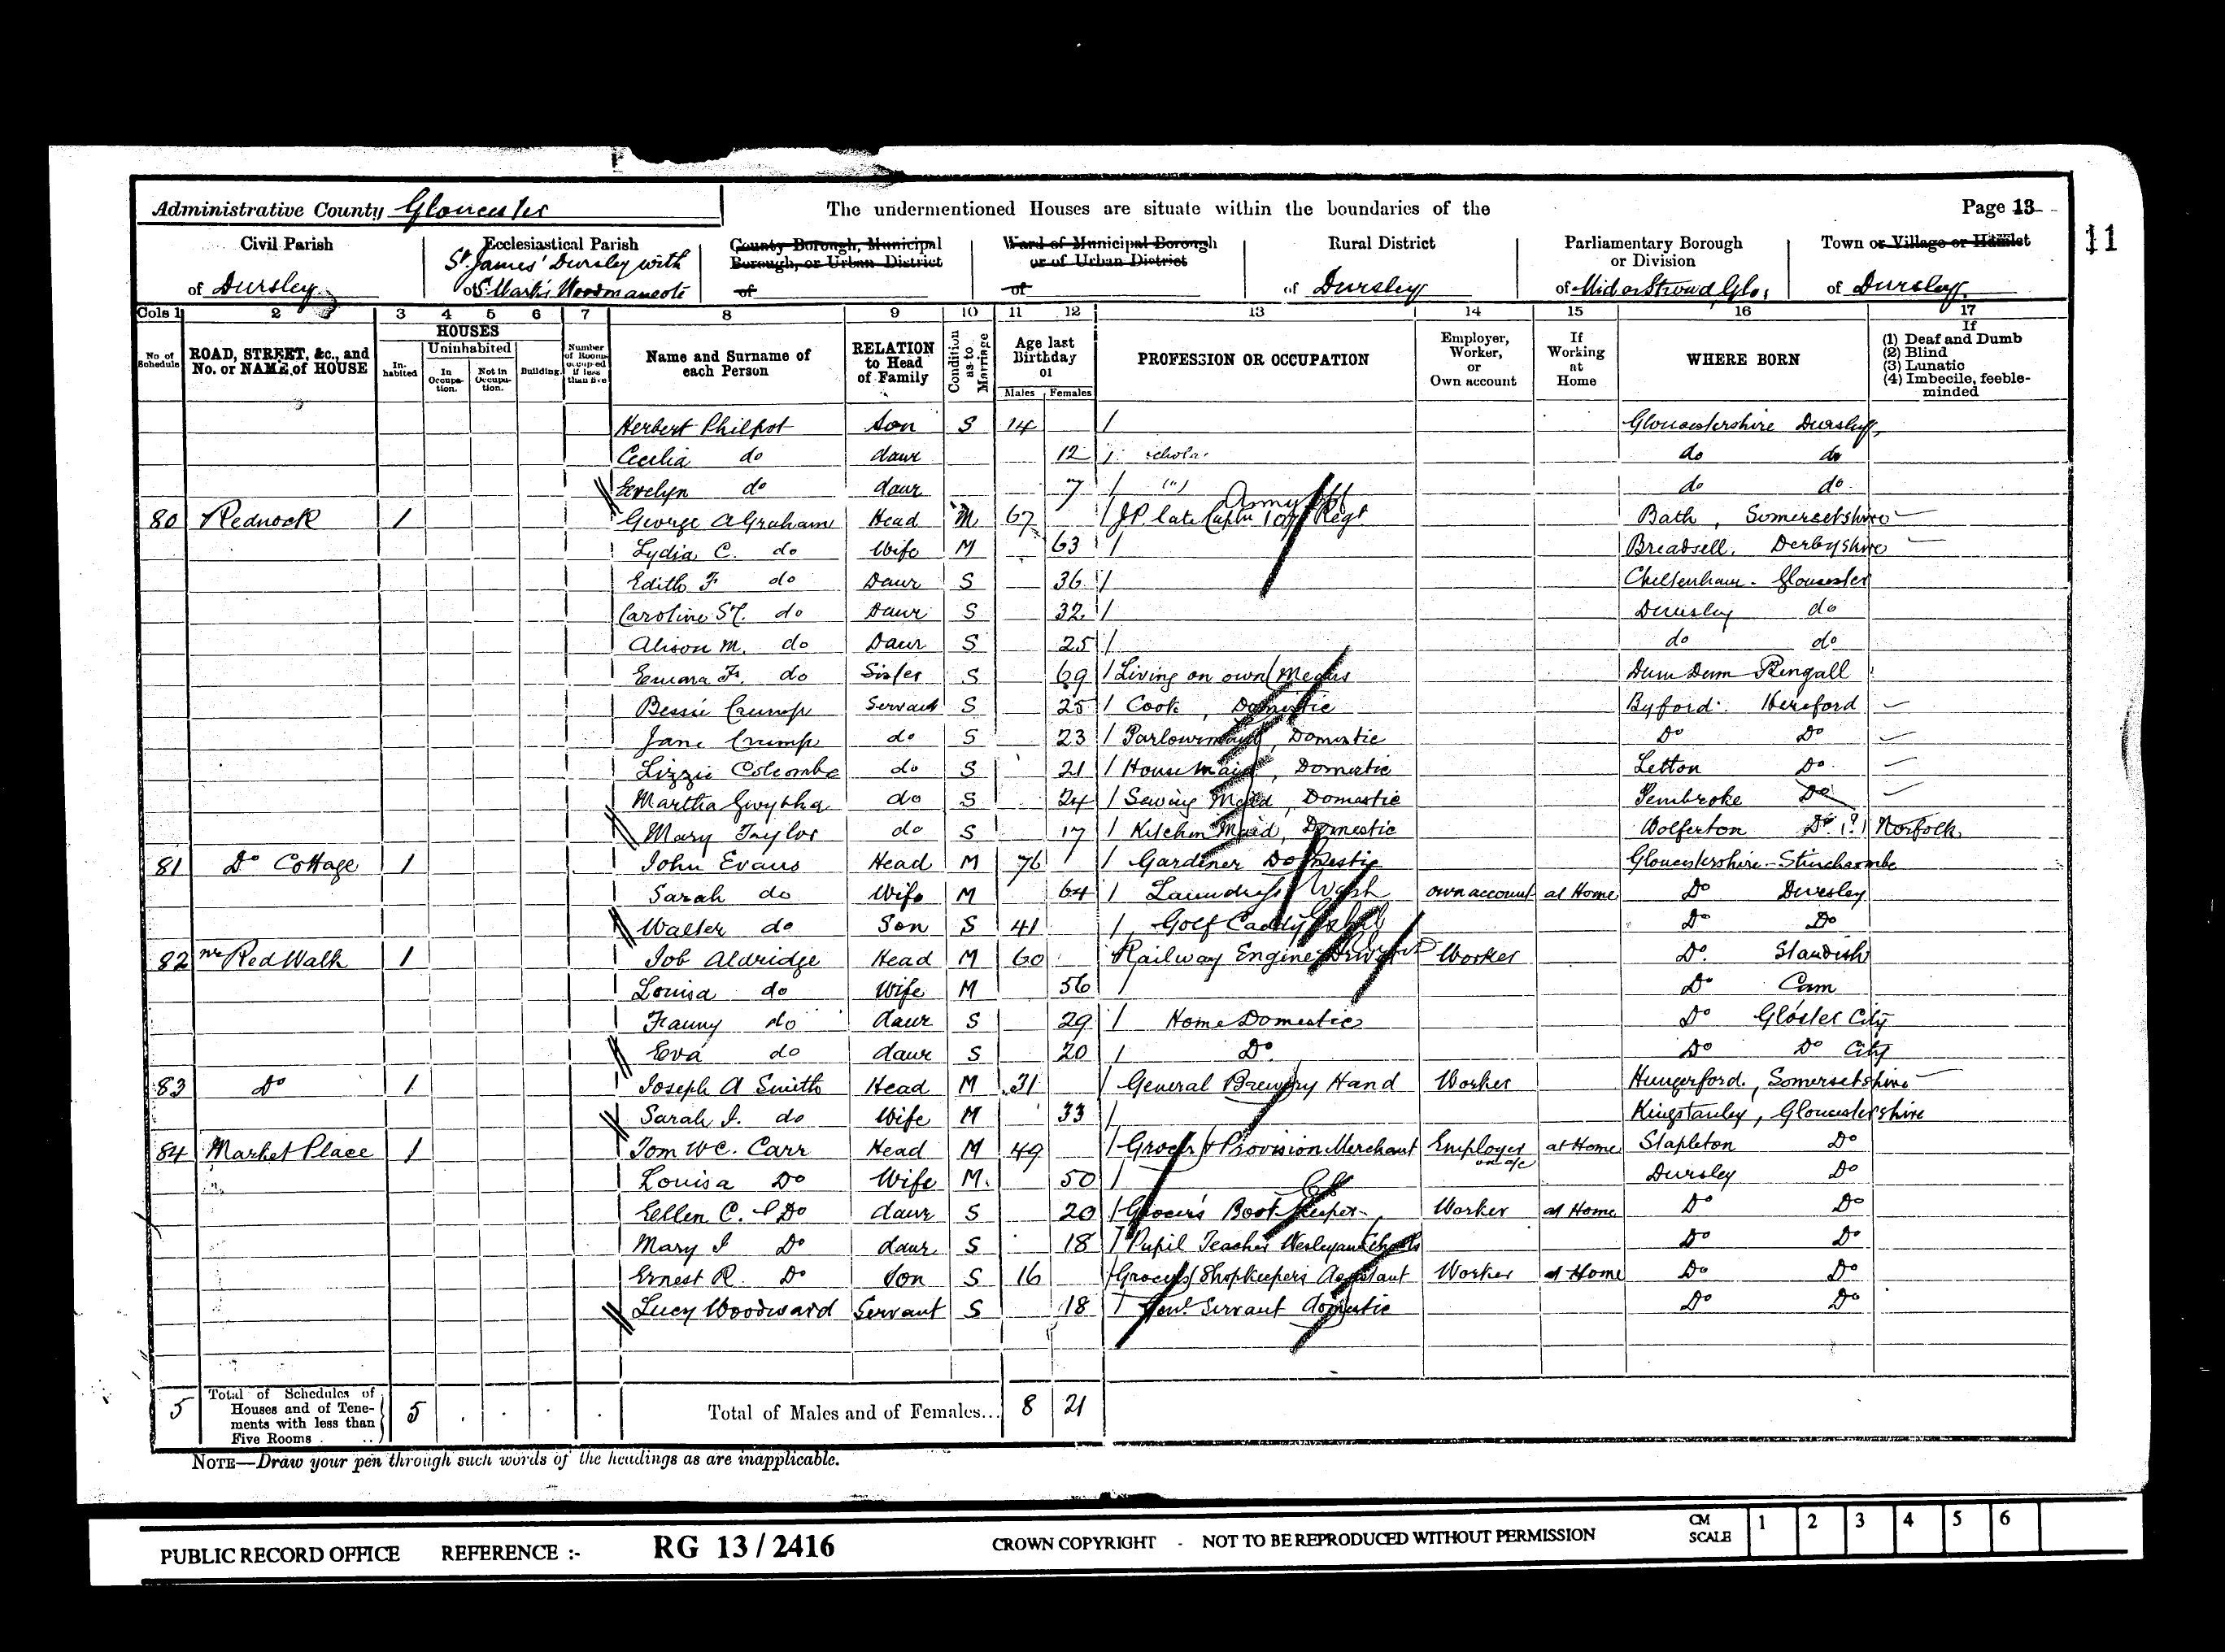 Administrative County Gloucester
The undermentioned Houses are situate within the boundaries of the
Page 13
11
Civil Parish
of Dursley
Ecclesiastical Parish
St. James' Dursley with
of St Mark's Woodmancote
County Borough, Municipal
Borough, or Urban District
of
Ward of Municipal Borough
or of Urban District
of
Rural District
of Dursley
Parliamentary Borough
or Division
of Mid or Stroud, Glos
Town or Village or Hamlet
of Dursley.
Cols 1 2 3 4 5 6 7 8 9 10 11 12 13 14 15 16 17
No of Schedule
ROAD, STREET, &c., and No. or NAME of HOUSE
HOUSES
In-habited
Uninhabited
In Occupa-tion.
Not in Occupa-tion.
Building
Number of Rooms occupied if less than five
Name and Surname of each Person
RELATION to Head of Family
Condition as to Marriage
Age last Birthday of
Males Females
PROFESSION OR OCCUPATION
Employer, Worker, or Own account
If Working at Home
WHERE BORN
If
(1) Deaf and Dumb
(2) Blind
(3) Lunatic
(4) Imbecile, feeble-minded
Herbert Philpot Son S 14 / Gloucestershire Dursley
Cecilia do daur 12 / scholar do do
Evelyn do daur 7 / (") do do
80 Rednock 1 George A Graham Head M 67 / JP late Captn Regt Army Bath, Somersetshire
Lydia C. do Wife M 63 / Breadsell. Derbyshire
Edith F do Daur S 36 / Cheltenham - Gloucester
Caroline St. do Daur S 32 / Dursley do
Alison M. do Daur S 25 / do do
Emma F. do Sister S 69 / Living on own Means Dum Dum Bengall
Bessie Crump Servant S 25 / Cook, Domestic Byford Hereford
Jane Crump do S 23 / Parlourmaid, Domestic Do Do
Lizzie Colcombe do S 21 / House Maid, Domestic Letton Do
Martha do S 24 / Sewing Maid, Domestic Pembroke Do
Mary Taylor do S 17 / Kitchen Maid, Domestic Wolferton Do (?) Norfolk
81 Do Cottage 1 John Evans Head M 76 / Gardener Domestic Gloucestershire - Stinchcombe
Sarah do Wife M 64 / Laundress Wash own account at Home Do Dursley
Walter do Son S 41 / Golf Caddy Do Do
82 nr Red Walk 1 Job Aldridge Head M 60 Railway Engine Driver Worker Do Standish
Louisa do Wife M 56 / Do Cam
Fanny do daur S 29 / Home Domestic Do Gloster City
Eva do daur S 20 / Do Do Do City
83 Do 1 Joseph A Smith Head M 31 / General Brewery Hand Worker Hungerford, Somersetshire
Sarah J. do Wife M 33 / Kingstanley, Gloucestershire
84 Market Place 1 Tom W C. Carr Head M 49 / Grocer & Provision Merchant Employer at Home Stapleton Do
Louisa Do Wife M. 50 / Dursley Do
Ellen C. Do daur S 20 / Grocer's Book Keeper Worker at Home Do Do
Mary J Do daur S 18 / Pupil Teacher Wesleyan Schools Do Do
Ernest R. Do Son S 16 / Grocers Shopkeepers Assistant Worker at Home Do Do
Lucy Woodward Servant S 18 / Genl. Servant domestic Do Do
5 Total of Schedules of Houses and of Tene-ments with less than Five Rooms 5 Total of Males and of Females... 8 21
NOTE—Draw your pen through such words of the headings as are inapplicable.
PUBLIC RECORD OFFICE REFERENCE :- RG 13 / 2416 CROWN COPYRIGHT - NOT TO BE REPRODUCED WITHOUT PERMISSION
CM SCALE 1 2 3 4 5 6